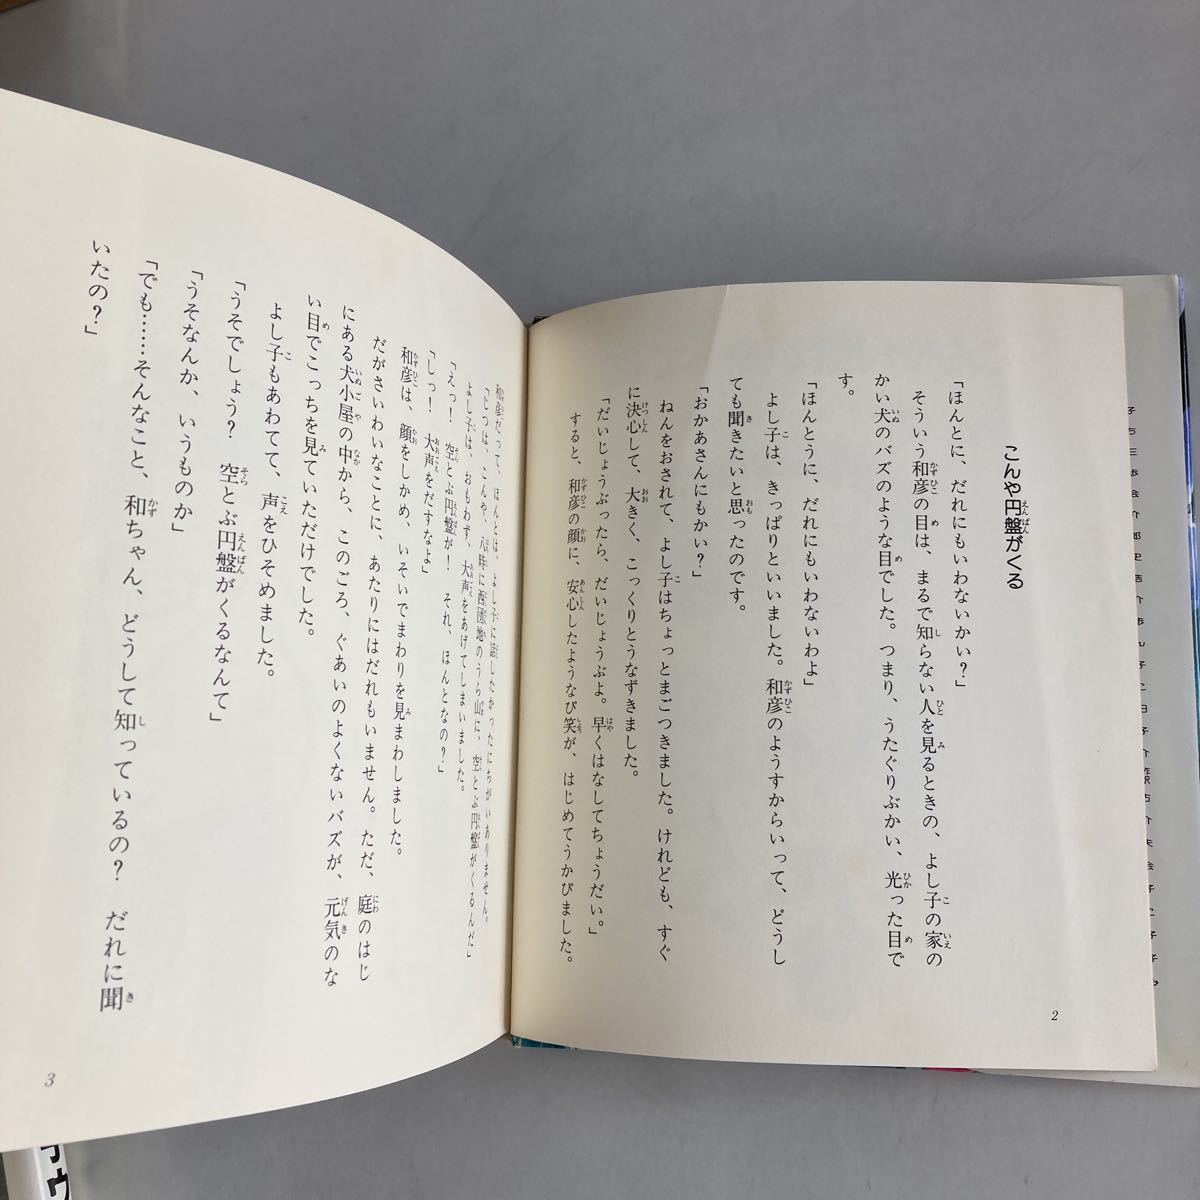 こんや円盤がくる
「ほんとに、だれにもいわないかい？」
そういう和彦の目は、まるで知らない人を見るときの、よし子の家の
かい犬のバズのような目でした。つまり、うたぐりぶかい、光った目で
す。
「ほんとうに、だれにもいわないわよ」
よし子は、きっぱりといいました。和彦のようすからいって、どうし
ても聞きたいと思ったのです。
「おかあさんにもかい？」
ねんをおされて、よし子はちょっとまごつきました。けれども、すぐ
に決心して、大きく、こっくりとうなずきました。
「だいじょうぶったら、だいじょうぶよ。早くはなしてちょうだい。」
すると、和彦の顔に、安心したようなび笑が、はじめてうかびました。
2
和彦だって、ほんとは、よし子に話したかったにちがいありません。
「じつは、こんや、八時に西団地のうら山に、空とぶ円盤がくるんだ」
よし子は、おもわず、大声をあげてしまいました。
「えっ！　空とぶ円盤が！　それ、ほんとなの？」
「しっ！　大声をだすなよ」
和彦は、顔をしかめ、いそいでまわりを見まわしました。
だがさいわいなことに、あたりにはだれもいません。ただ、庭のはじ
にある犬小屋の中から、このごろ、ぐあいのよくないバズが、元気のな
い目でこっちを見ていただけでした。
よし子もあわてて、声をひそめました。
「うそでしょう？　空とぶ円盤がくるなんて」
「うそなんか、いうものか」
「でも……そんなこと、和ちゃん、どうして知っているの？　だれに聞
いたの？」
3